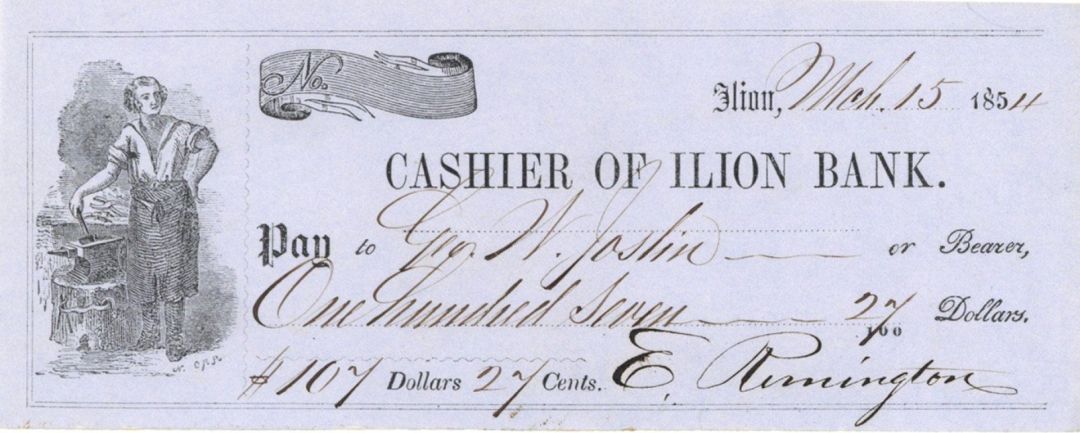 No.
Ilion, Mch. 15 1854
CASHIER OF ILION BANK.
Pay to Geo. W. Joslin or Bearer,
One hundred Seven 27/100 Dollars.
$107 Dollars 27 Cents. E. Remington